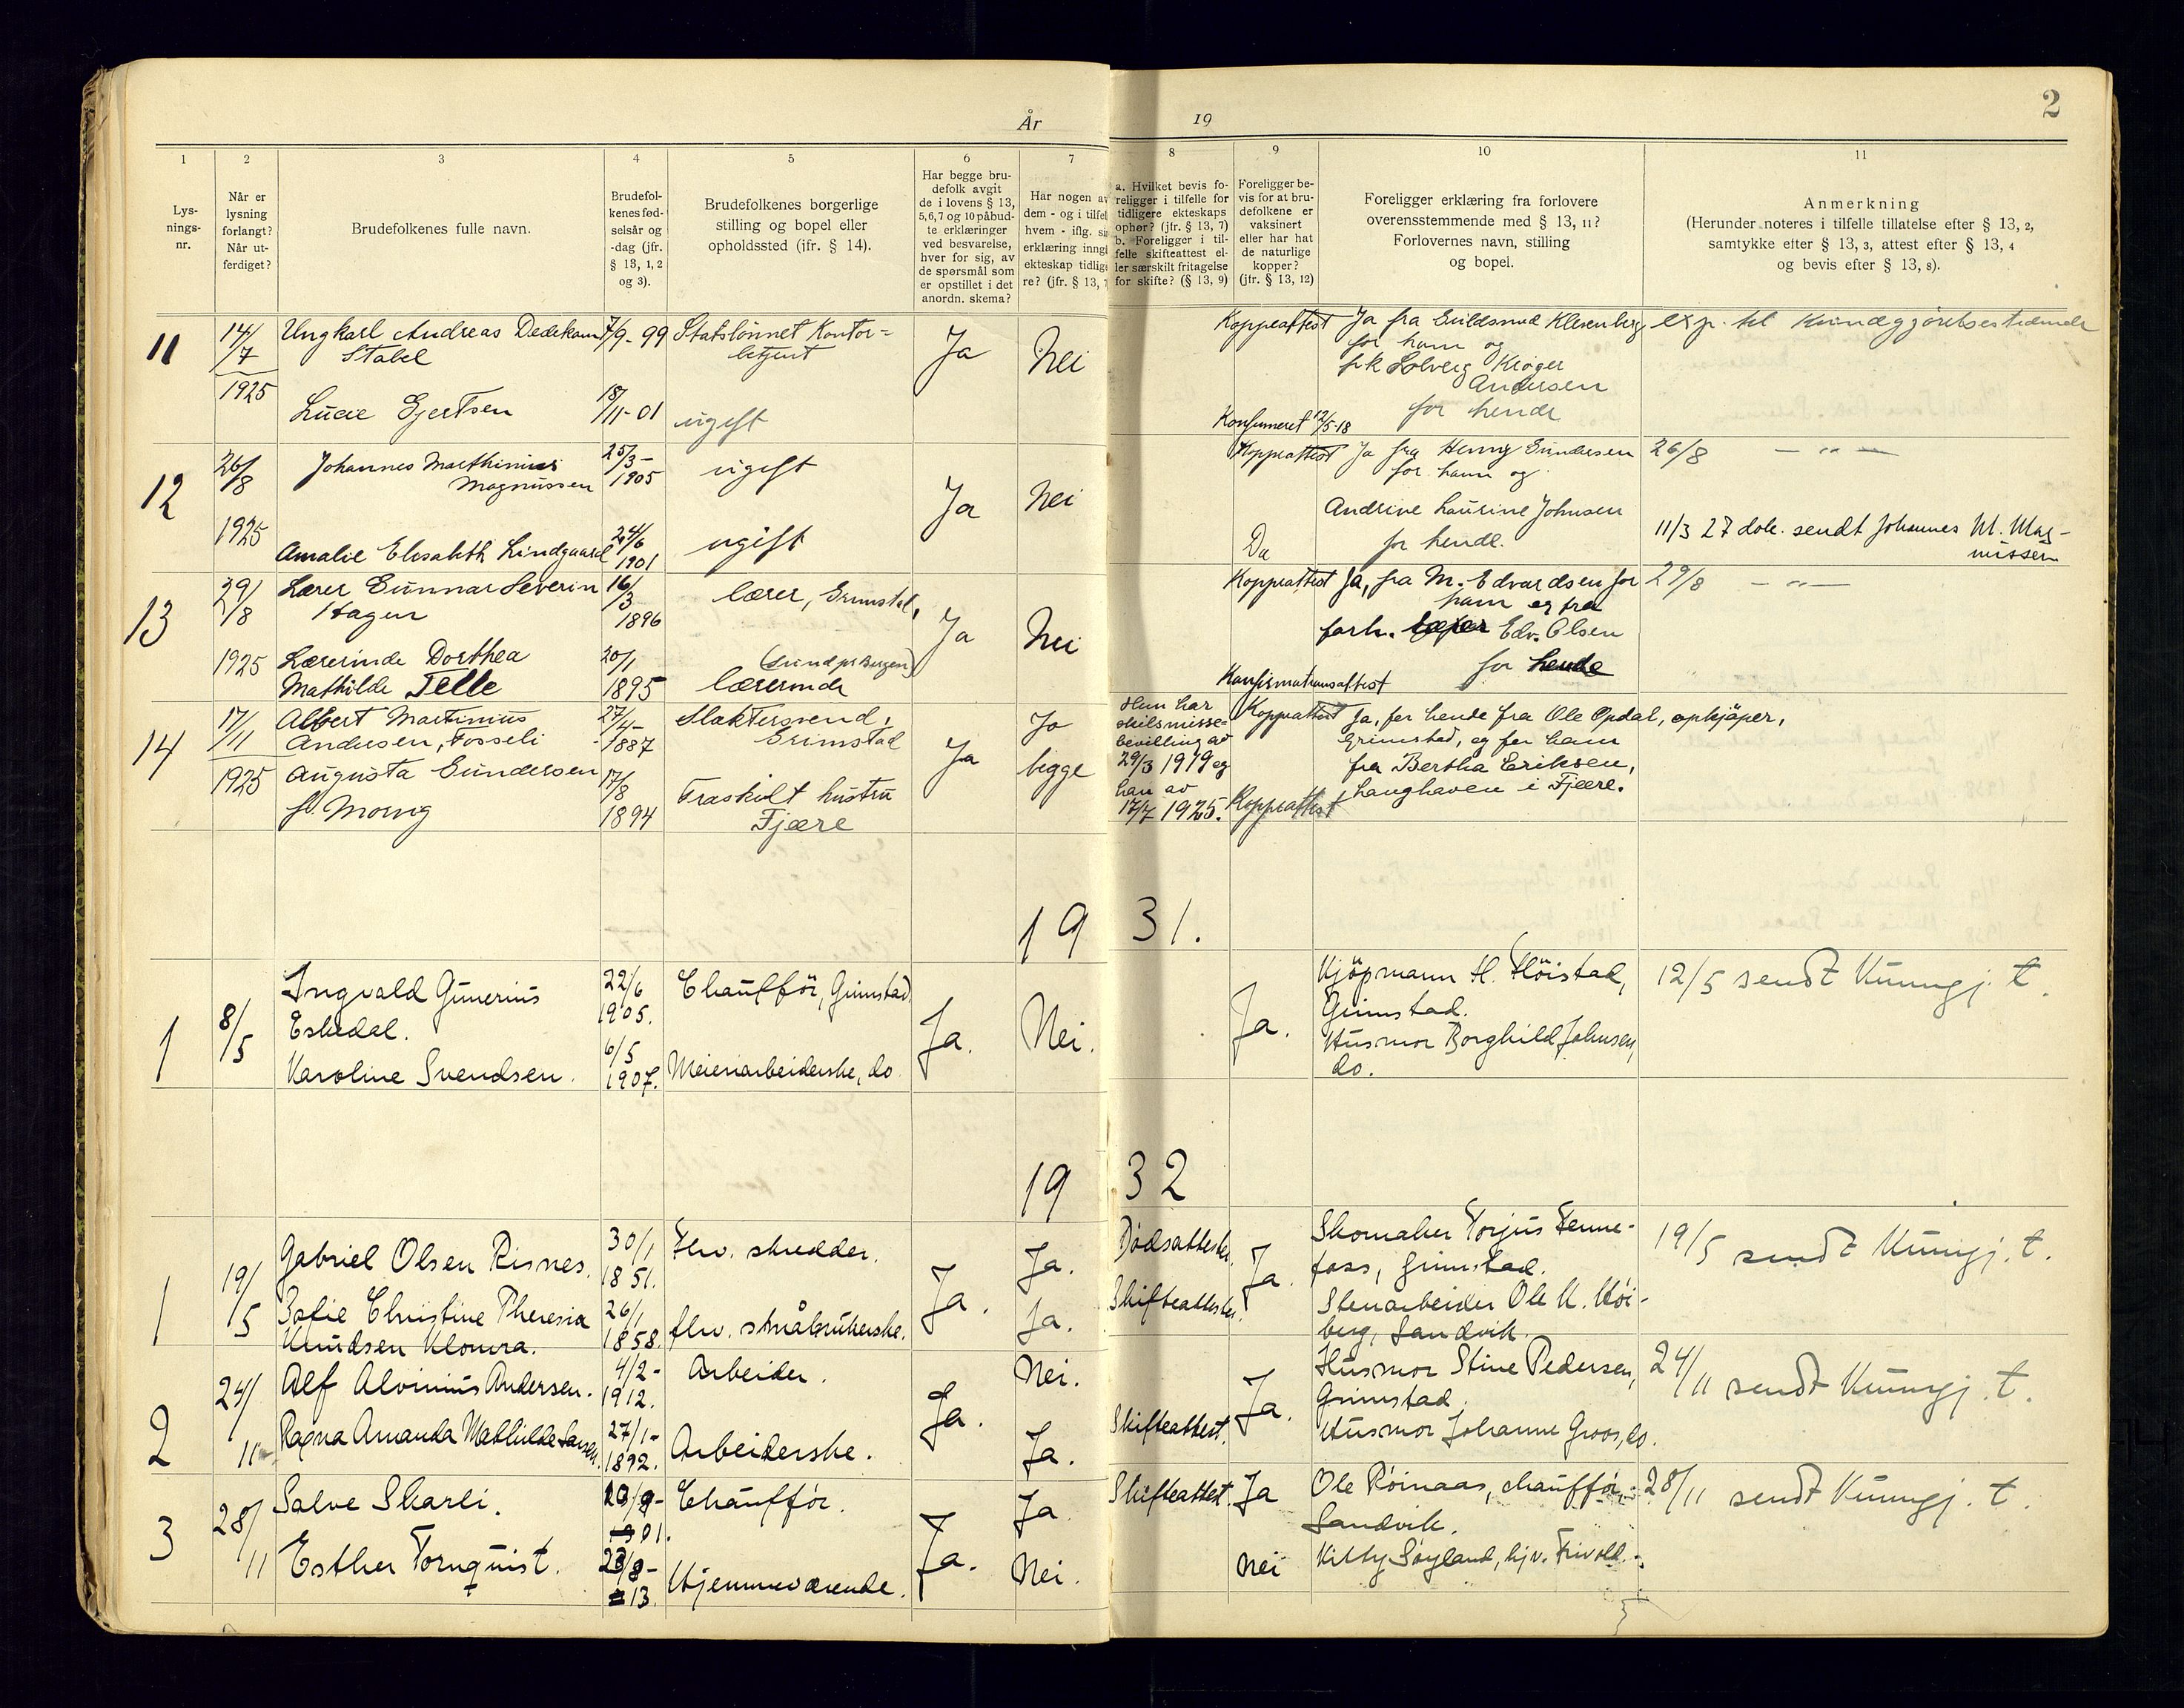 År 19
2
1 2 3 4 5 6 7 8 9 10 11
Lys-
nings-
nr.
Når er
lysning
forlangt?
Når ut-
ferdiget?
Brudefolkenes fulle navn.
Brudefol-
kenes fød-
selsår og
-dag (jfr.
§ 13, 1, 2
og 3).
Brudefolkenes borgerlige
stilling og bopel eller
opholdssted (jfr. § 14).
Har begge bru-
defolk avgit
de i lovens § 13,
5, 6, 7 og 10 påbud-
te erklæringer
ved besvarelse,
hver for sig, av
de spørsmål som
er opstillet i det
anordn. skema?
Har nogen av
dem - og i tilfel
hvem - iflg. si
erklæring inng
ekteskap tidlig
re? (jfr. § 13, 
a. Hvilket bevis fo-
religger i tilfelle for
tidligere ekteskaps
ophør? (jfr. § 13, 7)
b. Foreligger i til-
felle skifteattest el-
ler særskilt fritagelse
for skifte? (§ 13, 9)
Foreligger be-
vis for at bru-
defolkene er
vaksinert
eller har hat
de naturlige
kopper?
(jfr. § 13, 12)
Foreligger erklæring fra forlovere
overensstemmende med § 13, 11?
Forlovernes navn, stilling
og bopel.
Anmerkning
(Herunder noteres i tilfelle tillatelse efter § 13, 2,
samtykke efter § 13, 3, attest efter § 13, 4
og bevis efter § 13, 8).
11
14/
/7
1925
Ungkarl Andreas Dedekam
Stabel
7/9-99
Statslønnet Kontor-
betjent
Lucie Gjertsen
18/
/11-01
ugift
Ja
Nei
Koppeattest
Konfirmeret 12/5-18
Ja fra Guldsmed Klerenberg
for ham og
frk Solveig Krøger
Andersen
for hende
exp. til Kundgjørelsestidende
12
26/
/8
1925
Johannes Marthinius
Magnussen
25/3-
1905
ugift
Amalie Elisabeth Lindgaard
24/6
1901
ugift
Ja
Nei
Koppeattest
Do
Ja fra Henry Gundersen
for ham og
Andrine Laurine Johnsen
for hende.
26/8 — " —
11/3 27 dole. sendt Johannes M. Mag-
nussen
13
29/
/8
1925
Lærer Gunnar Severin
Hagen
16/
/3
1896
lærer, Grimstad,
Lærerinde Dorthea
Mathilde Telle
20/1
1895
(Lund pr Bergen)
lærerinde
Ja
Nei
Koppeattest
Konfirmationsattest
Ja, fra M. Edvardsen for
ham og fra
forh. Edv. Olsen
for hende
29/8 — " —
14
17/
/11
1925
Albert Martinius
Andersen, Fosseli
27/4-
1887
Slaktersvend,
Grimstad
Augusta Gundersen
f. Moring
17/8
1894
Fraskilt hustru
Fjære
Ja
Ja
begge
Hun har
skilsmisse-
bevilling av
29/3 1919 og
han av
17/7 1925.
Koppeattest
Koppeattest
Ja, for hende fra Ole Opdal, opkjøper,
Grimstad, og for ham
fra Bertha Eriksen,
Langhaven i Fjære.
19 31.
1
8/
5
Ingvald Gunerius
Eskedal.
22/6
1905.
Chaufför, Grimstad.
Karoline Svendsen.
6/5
1907.
Meieriarbeiderske, do
Ja.
Nei.
Ja.
Kjöpmann H. Höistad,
Grimstad.
Husmor Borghild Johnsen,
do.
12/5 sendt Kunngj. t.
19 32
1
19/
5
Gabriel Olsen Risnes.
30/1
1851.
Fhv. skredder.
Sofie Christine Theresia
Knudsen Klovra.
26/1
1858.
fhv. småbrukerske.
Ja.
Ja.
Ja.
Dödsattester,
Skifteattester.
Ja.
Skomaker Torjus Fenne-
foss, Grimstad.
Stenarbeider Ole K. Höi-
berg, Sandvik.
19/5 sendt Kunngj. t.
2
24/
11
Alf Alvinius Andersen.
4/2-
1912.
Arbeider.
Ragna Amanda Mathilde Larsen.
27/1-
1892.
Arbeiderske.
Ja.
Nei.
Ja.
Skifteattest.
Ja.
Husmor Stine Pedersen,
Grimstad.
Husmor Johanne Groos, do.
24/11 sendt Kunngj. t.
3
28/
11
Salve Skarli.
01.
Chaufför.
Esther Tornquist.
13.
Hjemmeværende.
Ja.
Ja
Nei.
Skifteattest.
Ja
Nei
Ole Röinaas, chaufför,
Sandvik.
Kitty Söyland, hjv. Frivold.
28/11 sendt Kunngj. t.